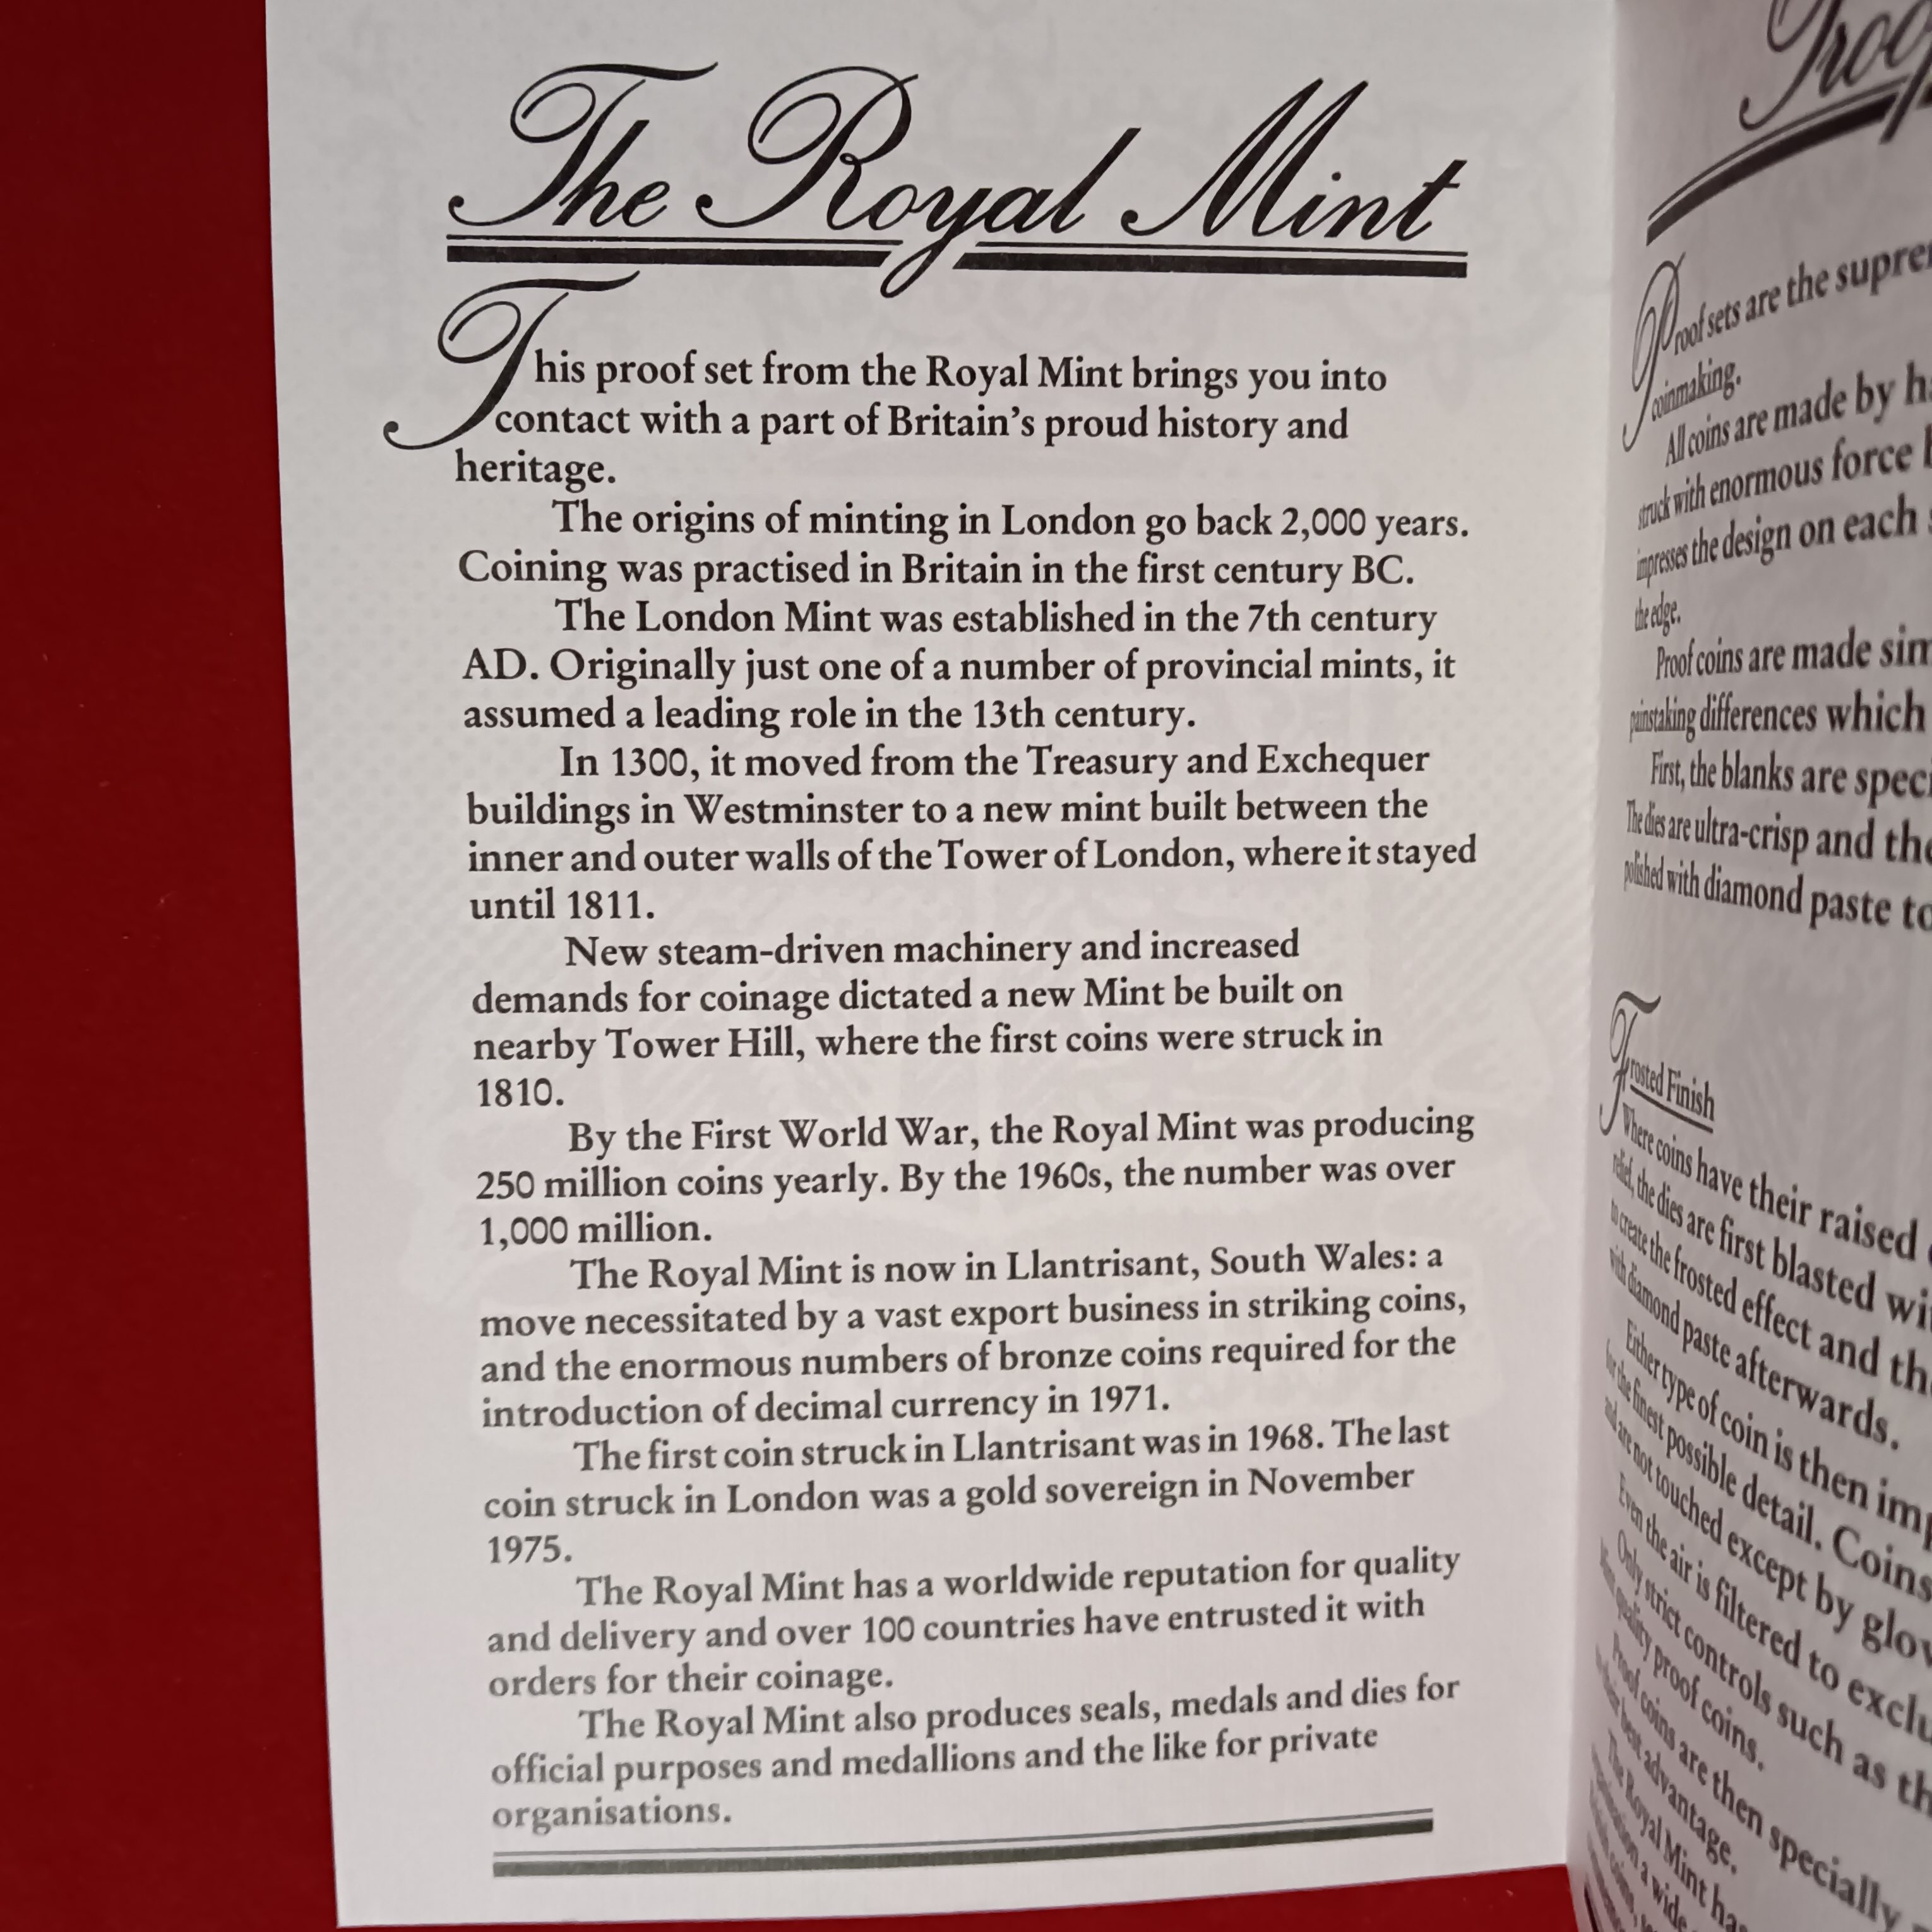 The Royal Mint
This proof set from the Royal Mint brings you into
contact with a part of Britain's proud history and
heritage.
The origins of minting in London go back 2,000 years.
Coining was practised in Britain in the first century BC.
The London Mint was established in the 7th century
AD. Originally just one of a number of provincial mints, it
assumed a leading role in the 13th century.
In 1300, it moved from the Treasury and Exchequer
buildings in Westminster to a new mint built between the
inner and outer walls of the Tower of London, where it stayed
until 1811.
New steam-driven machinery and increased
demands for coinage dictated a new Mint be built on
nearby Tower Hill, where the first coins were struck in
1810.
By the First World War, the Royal Mint was producing
250 million coins yearly. By the 1960s, the number was over
1,000 million.
The Royal Mint is now in Llantrisant, South Wales: a
move necessitated by a vast export business in striking coins,
and the enormous numbers of bronze coins required for the
introduction of decimal currency in 1971.
The first coin struck in Llantrisant was in 1968. The last
coin struck in London was a gold sovereign in November
1975.
The Royal Mint has a worldwide reputation for quality
and delivery and over 100 countries have entrusted it with
orders for their coinage.
The Royal Mint also produces seals, medals and dies for
official purposes and medallions and the like for private
organisations.
Proof sets are the
coinmaking.
All coins are made by
struck with enormous force
impresses the design on each
the edge.
Proof coins are made
painstaking differences which
First, the blanks are
The dies are ultra-crisp and
polished with diamond paste to
Frosted Finish
Where coins have their raised
relief, the dies are first blasted
to create the frosted effect and
with diamond paste afterwards.
Either type of coin is then
for the finest possible detail. Coins
and are not touched except by
Even the air is filtered to
Only strict controls such as
quality proof coins.
Proof coins are then specially
their best advantage.
The Royal Mint
a wide